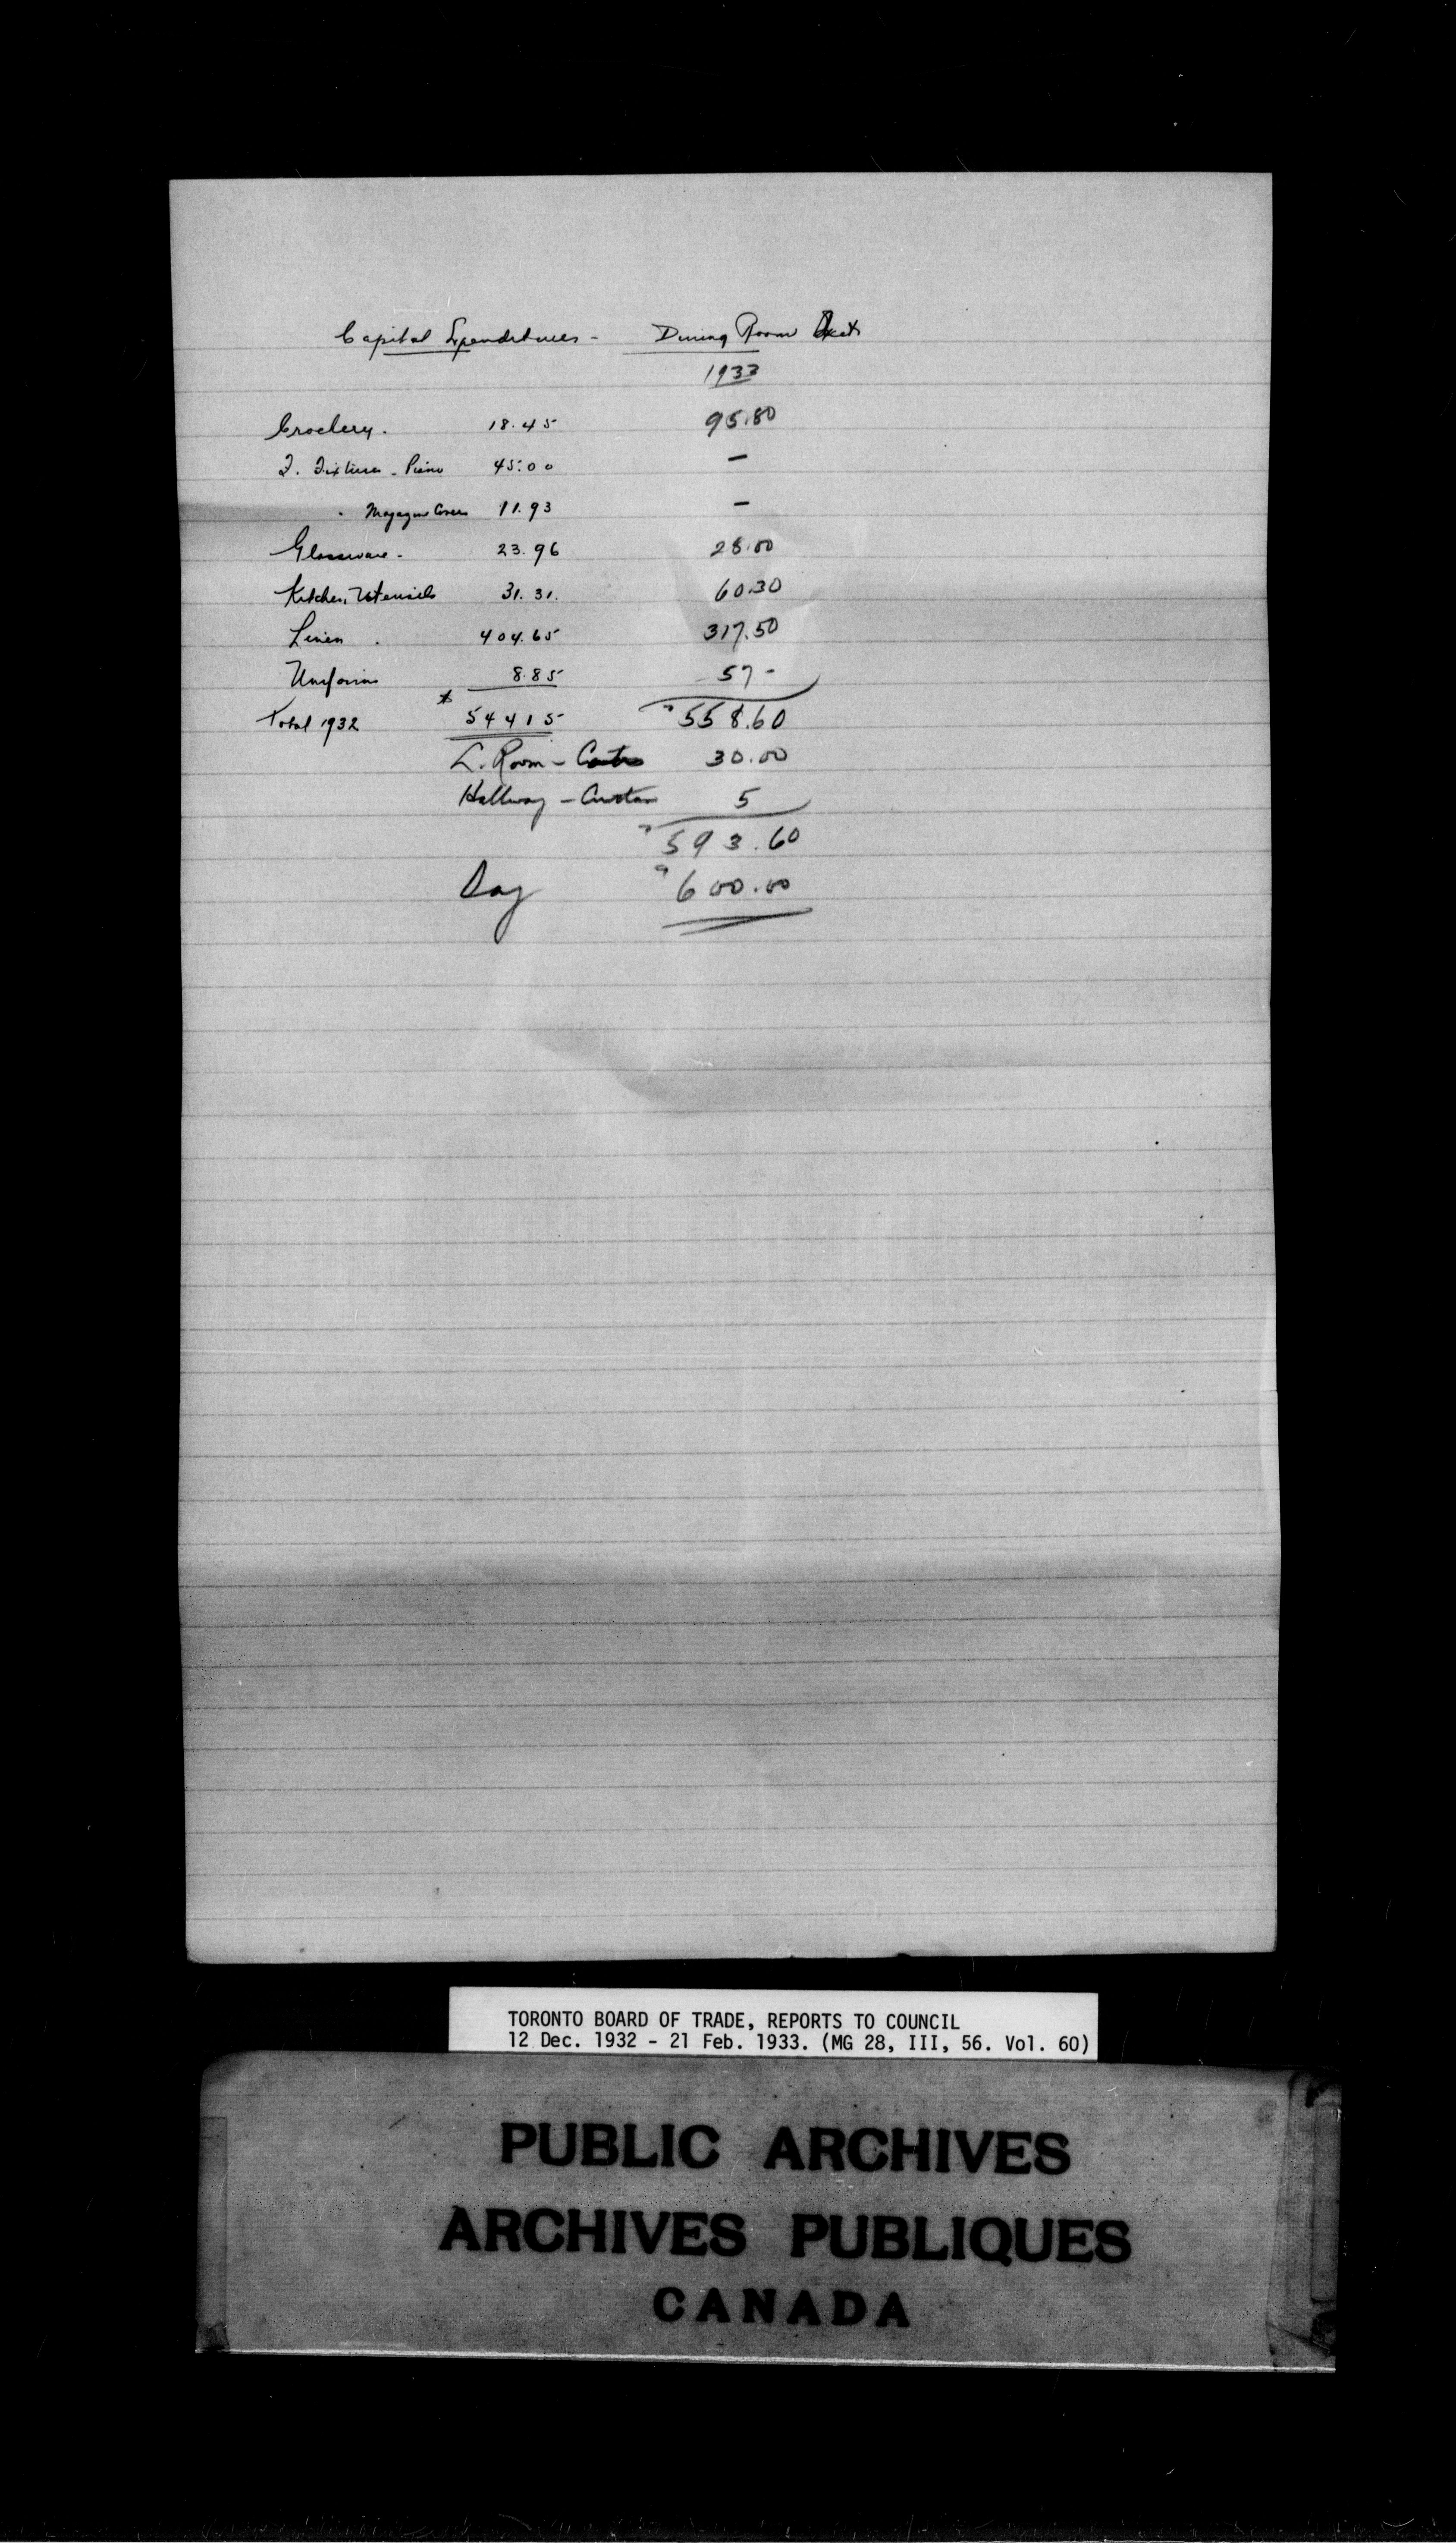 Capital Expenditures - Dining Room
1933
Crockery. 18.45 95.80
F. Fixtures - Piano 45.00 -
" Magazine Covers 11.93 -
Glassware - 23.96 28.00
Kitchen Utensils 31.31. 60.30
Linen . 404.65 317.50
Uniforms 8.85 57 -
Total 1932 $ 544 15 558.60
L. Room - 30.00
Hallway - Curtain 5
593.60
Say 600.00
TORONTO BOARD OF TRADE, REPORTS TO COUNCIL
12 Dec. 1932 - 21 Feb. 1933. (MG 28, III, 56. Vol. 60)
PUBLIC ARCHIVES
ARCHIVES PUBLIQUES
CANADA